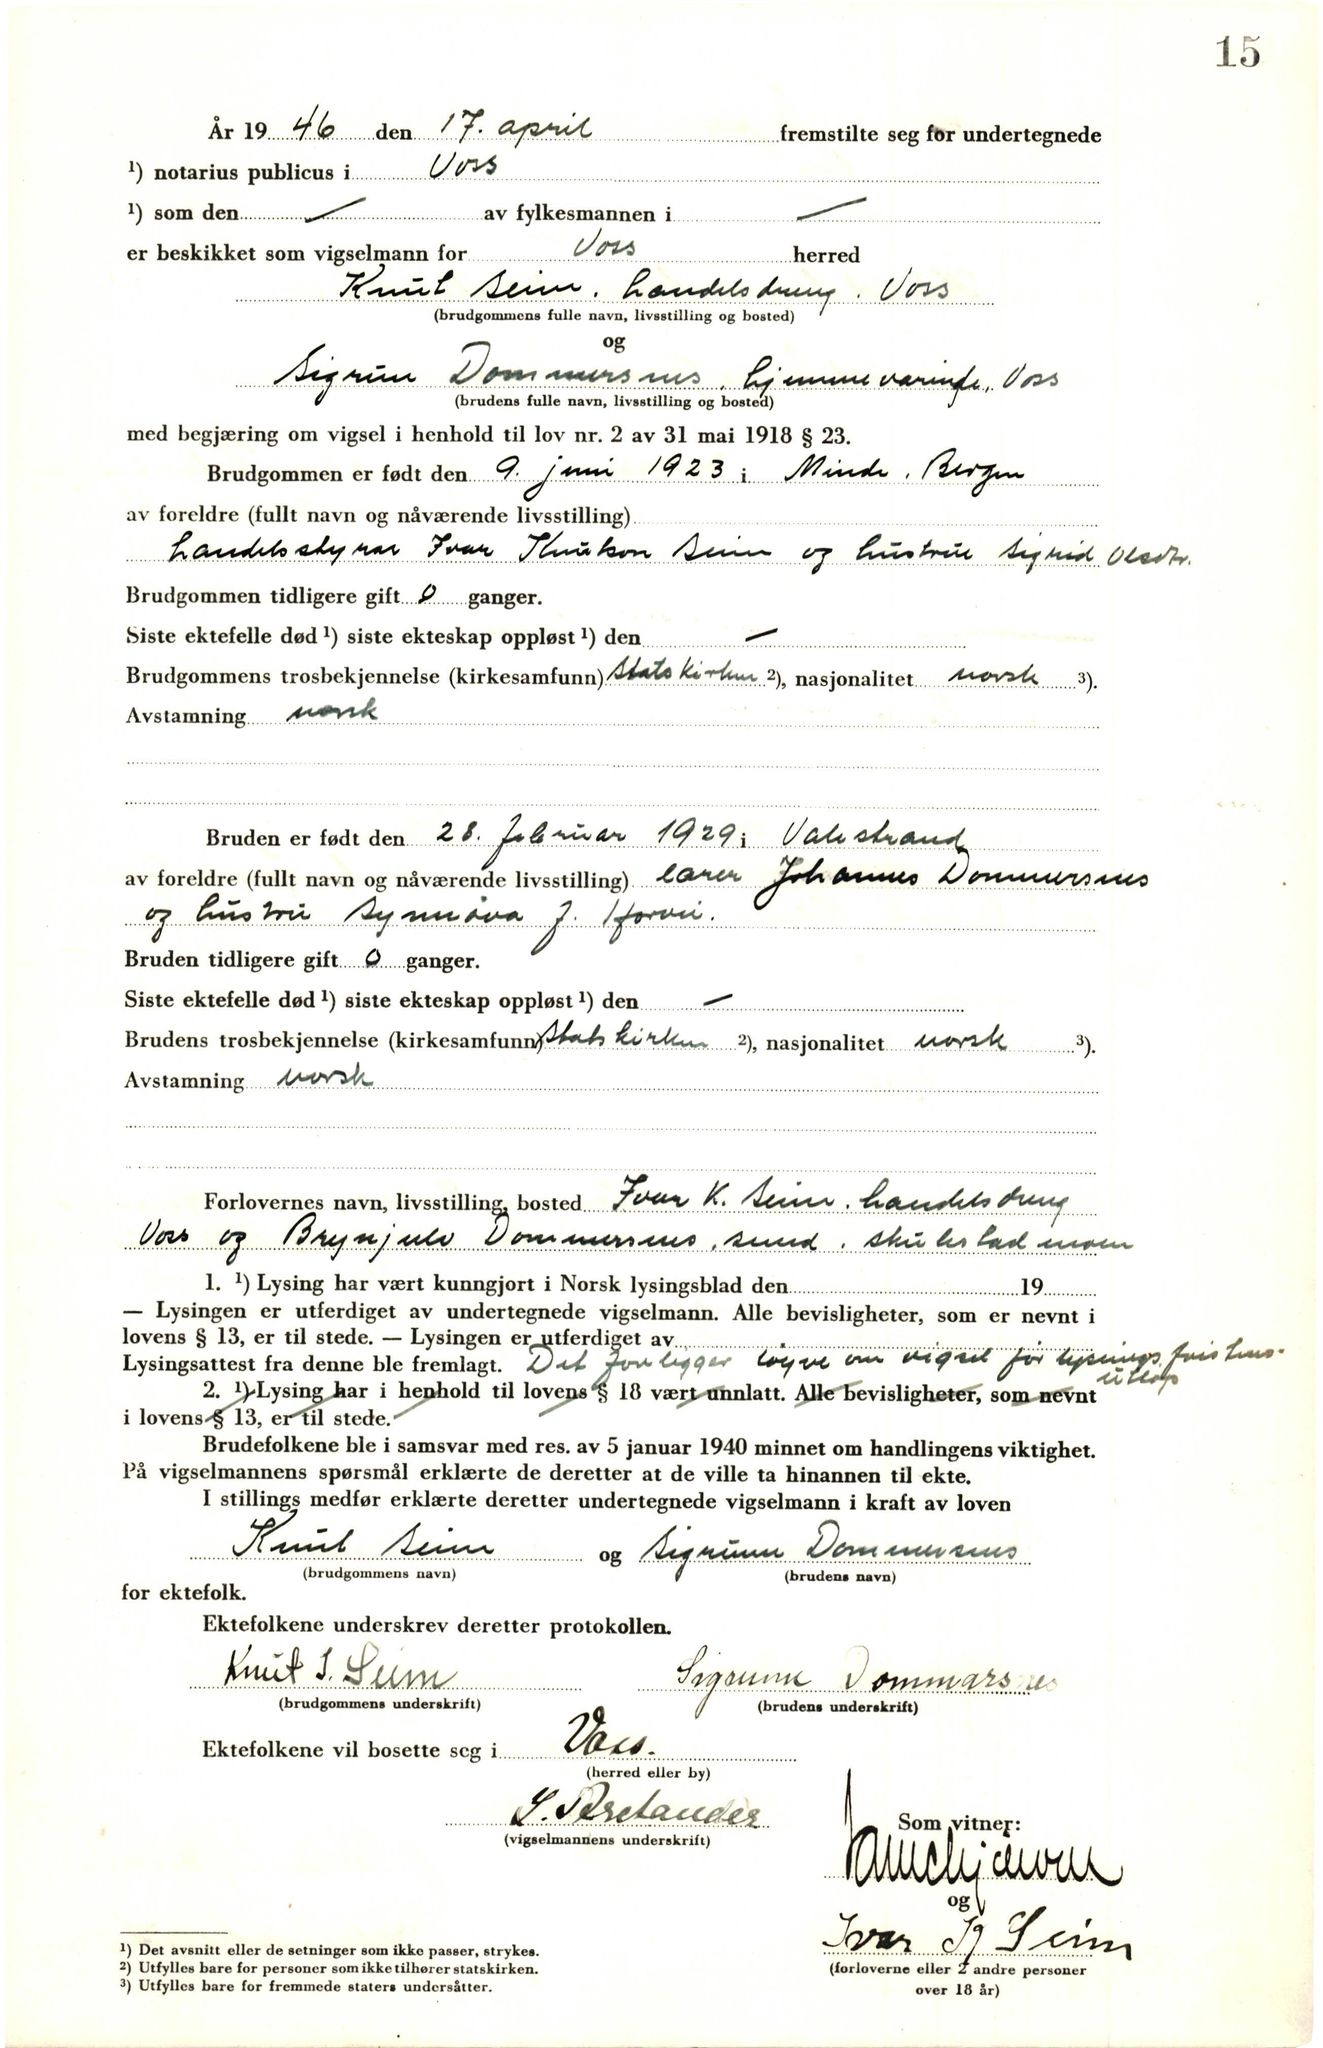 15
År 19 46 den 17. april fremstilte seg for undertegnede
¹) notarius publicus i Voss
¹) som den — av fylkesmannen i —
er beskikket som vigselmann for Voss herred
Knut Seim. handelsdreng. Voss
(brudgommens fulle navn, livsstilling og bosted)
og
Sigrun Dommersnes, hjemmeværende, Voss
(brudens fulle navn, livsstilling og bosted)
med begjæring om vigsel i henhold til lov nr. 2 av 31 mai 1918 § 23.
Brudgommen er født den 9. juni 1923 i Minde, Bergen
av foreldre (fullt navn og nåværende livsstilling)
handelsstyrar Ivar Knutson Seim og hustru Sigrid Olsdtr.
Brudgommen tidligere gift 0 ganger.
Siste ektefelle død ¹) siste ekteskap oppløst ¹) den —
Brudgommens trosbekjennelse (kirkesamfunn) Statskirken ²), nasjonalitet norsk ³).
Avstamning norsk
Bruden er født den 28. februar 1929 i Valestrand
av foreldre (fullt navn og nåværende livsstilling) lærer Johannes Dommersnes
og hustru Synnöva J.
Bruden tidligere gift 0 ganger.
Siste ektefelle død ¹) siste ekteskap oppløst ¹) den —
Brudens trosbekjennelse (kirkesamfunn) Statskirken ²), nasjonalitet norsk ³).
Avstamning norsk
Forlovernes navn, livsstilling, bosted Ivar K. Seim. handelsdreng
Voss og Brynjulv Dommersnes, Skulestadmoen
1. ¹) Lysing har vært kunngjort i Norsk lysingsblad den 19
— Lysingen er utferdiget av undertegnede vigselmann. Alle bevisligheter, som er nevnt i
lovens § 13, er til stede. — Lysingen er utferdiget av
Lysingsattest fra denne ble fremlagt. Det foreligger løyve om vigsel før lysingsfristens
utløp
2. ¹) Lysing har i henhold til lovens § 18 vært unnlatt. Alle bevisligheter, som nevnt
i lovens § 13, er til stede.
Brudefolkene ble i samsvar med res. av 5 januar 1940 minnet om handlingens viktighet.
På vigselmannens spørsmål erklærte de deretter at de ville ta hinannen til ekte.
I stillings medfør erklærte deretter undertegnede vigselmann i kraft av loven
Knut Seim og Sigrunn Dommersnes
(brudgommens navn) (brudens navn)
for ektefolk.
Ektefolkene underskrev deretter protokollen.
Knut I. Seim Sigrunn Dommarsnes
(brudgommens underskrift) (brudens underskrift)
Ektefolkene vil bosette seg i Voss.
(herred eller by)
(vigselmannens underskrift)
Som vitner:
og
Ivar K Seim
(forloverne eller 2 andre personer
over 18 år)
¹) Det avsnitt eller de setninger som ikke passer, strykes.
²) Utfylles bare for personer som ikke tilhører statskirken.
³) Utfylles bare for fremmede staters undersåtter.